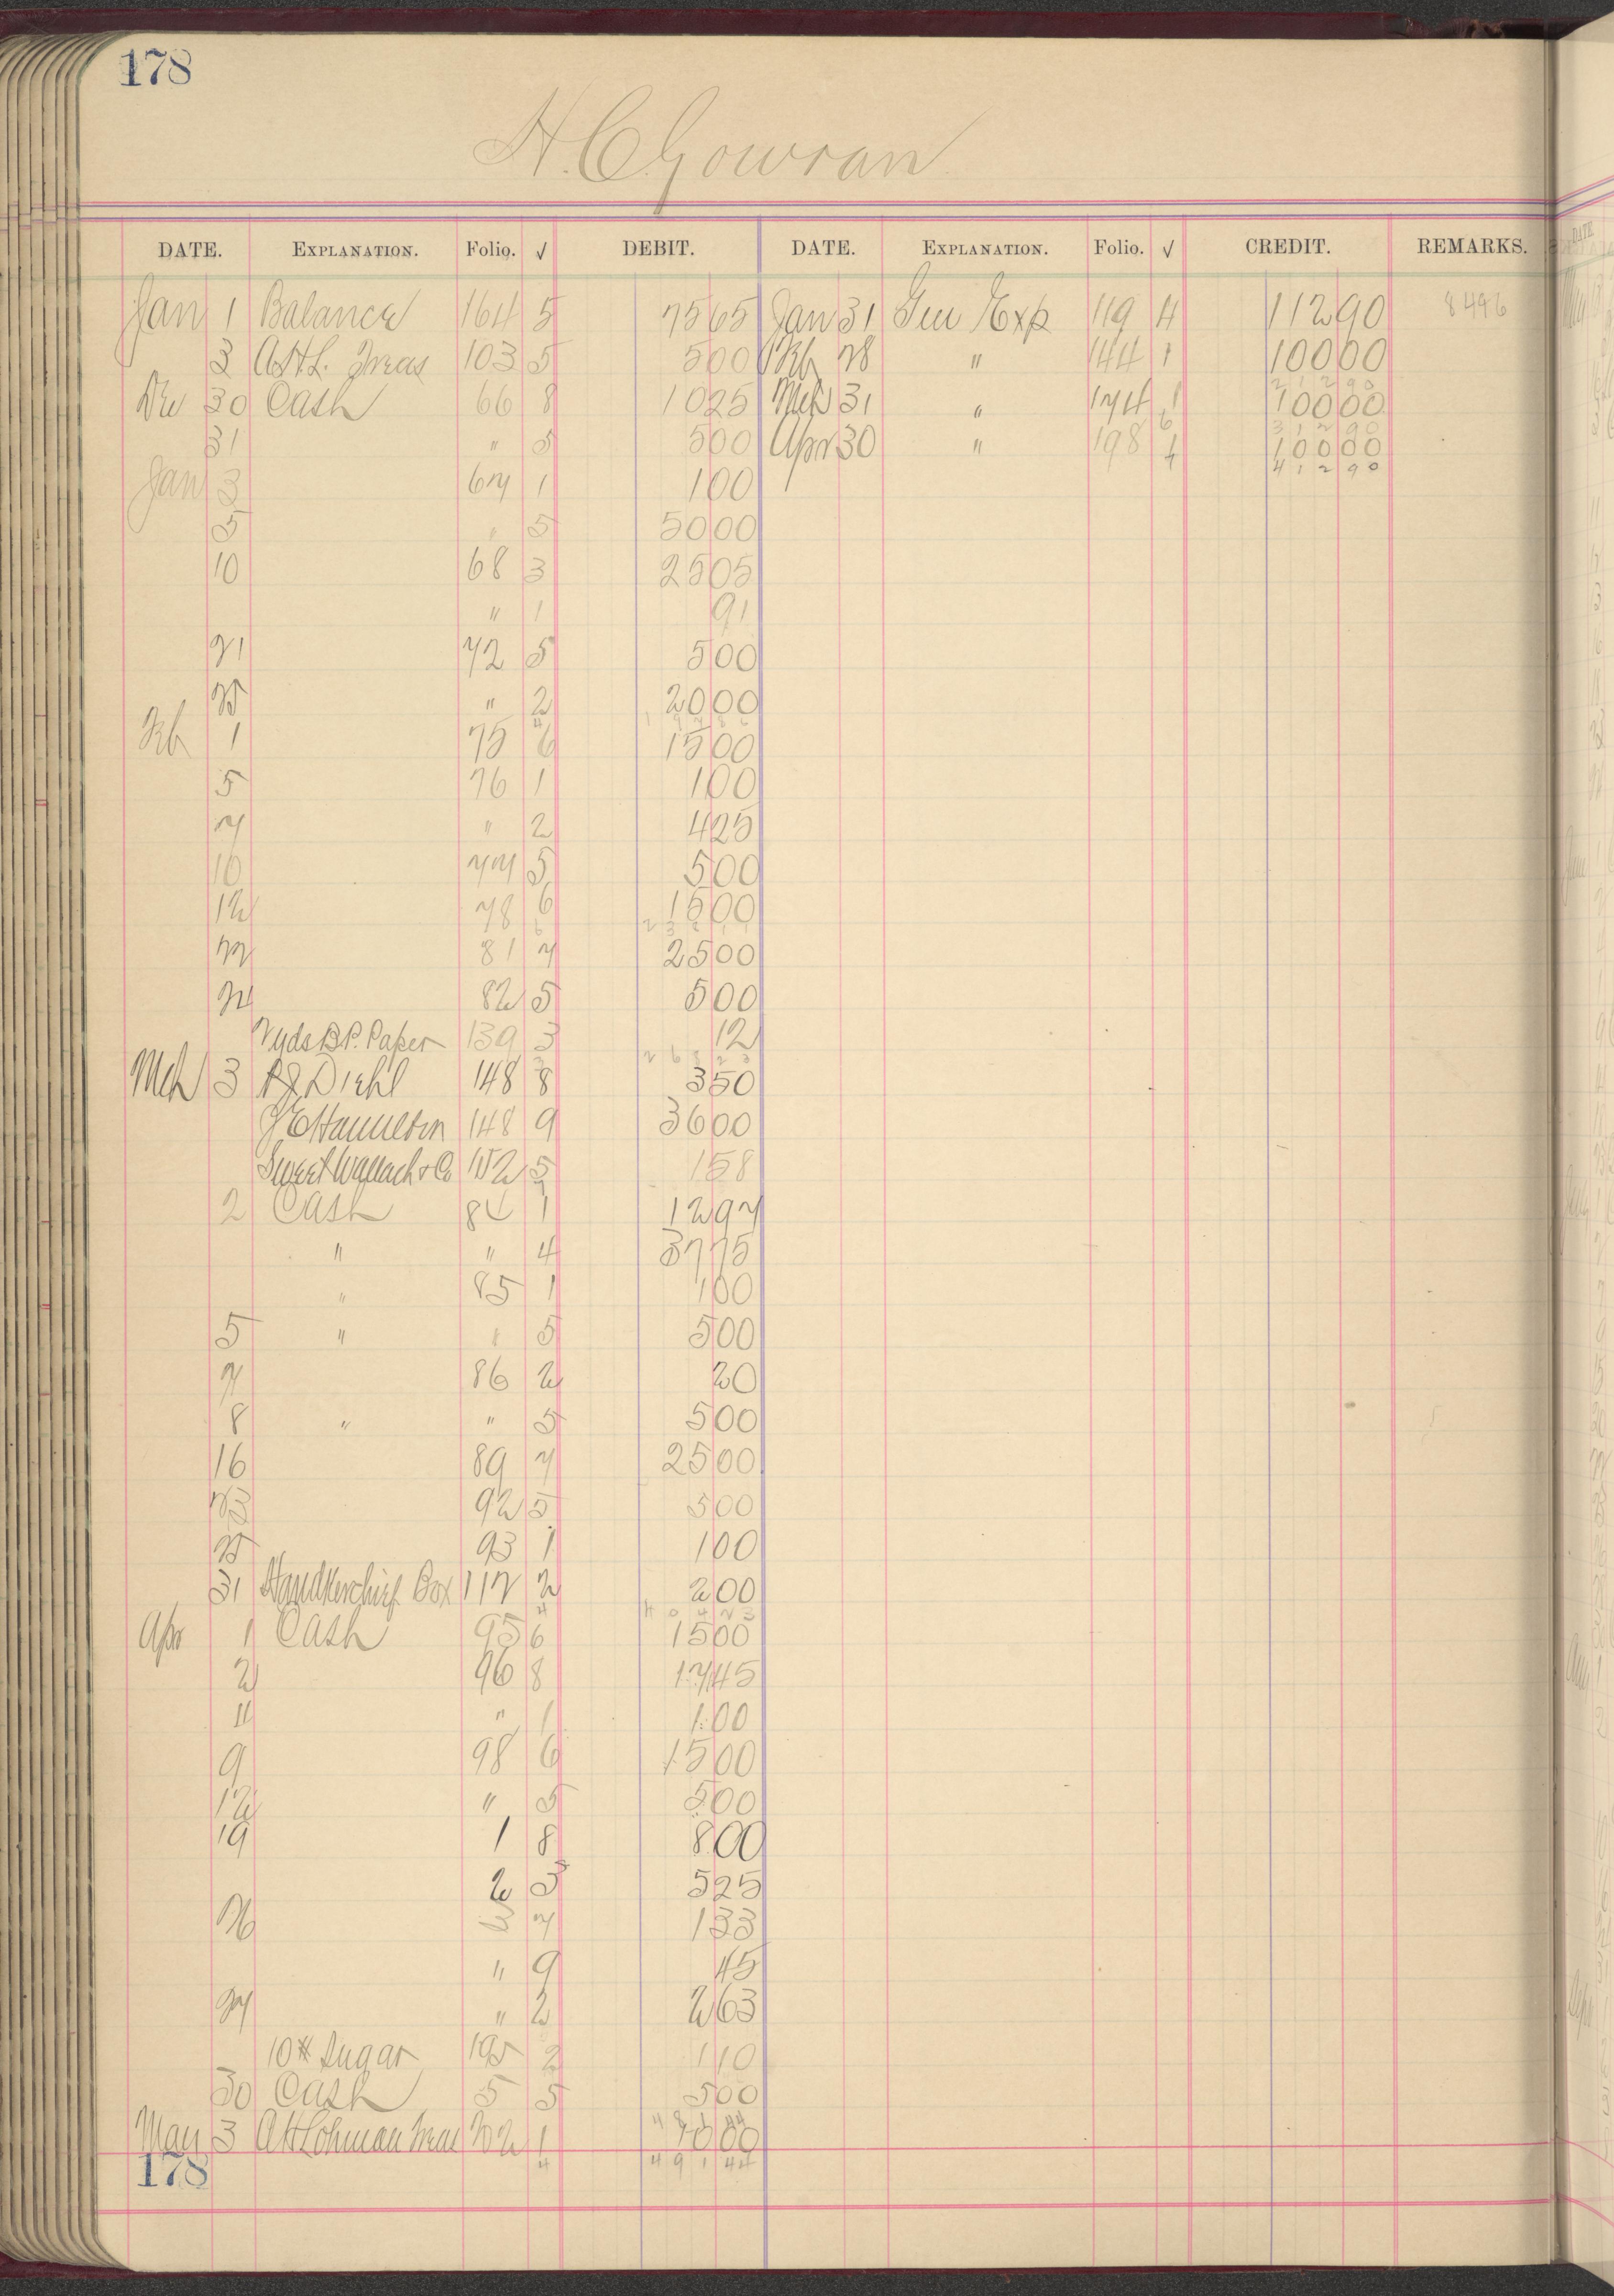 178
H. C. Gowran
DATE. EXPLANATION. Folio. √ DEBIT. DATE. EXPLANATION. Folio. √ CREDIT. REMARKS.
Jan 1 Balance 164 5 7565 Jan 31 Gen Exp 119 4 11290 8496
3 A.H.L. Treas 103 5 500 Feb 28 " 144 1 10000
21290
Dec 30 Cash 66 8 1025 Mch 31 " 174 1 10000
6 31290
31 " 5 500 Apr 30 " 198 1 10000
4 41290
Jan 3 67 1 100
5 " 5 5000
10 68 3 2505
" 1 91
21 72 5 500
25 " 2 2000
4
Feb 1 75 6 1500
5 76 1 100
7 " 2 425
10 77 5 500
12 78 6 1500
6
22 81 7 2500
24 82 5 500
2 yds B.P. Paper 139 3 12
Mch 3 R J Diehl 148 8 350
148 9 3600
Sweet Wallach & Co 152 5 158
2 Cash 84 1 1297
" " 4 3775
" 85 1 100
5 " " 5 500
7 86 2 20
8 " " 5 500
16 89 7 2500
23 92 5 500
25 93 1 100
31 Handkerchief Box 117 2 200
4 40423
Apr 1 Cash 95 6 1500
2 96 8 1745
4 " 1 100
9 98 6 1500
12 " 5 500
19 1 8 800
2 5 525
26 7 133
" 9 45
27 " 2 263
10# Sugar 195 2 110
30 Cash 5 5 500
48144
May 3 A H Lohman Treas 202 1 1000
178 4 49144